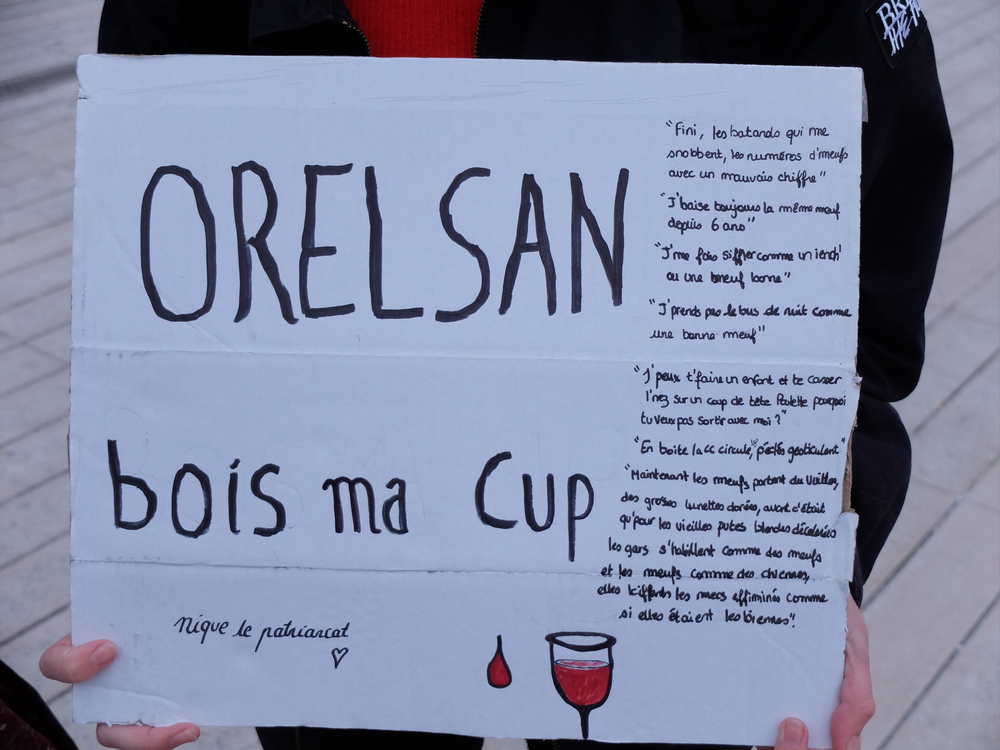 ORELSAN
bois ma Cup
nique le patriarcat
"Fini, les batards qui me
snobbent, les numéros d'meufs
avec un mauvais chiffre"
"J'baise toujours la même meuf
depuis 6 ans"
"J'me fais siffler comme un iench'
ou une meuf bonne"
"J'prends pas le bus de nuit comme
une bonne meuf"
"J'peux t'faire un enfant et te casser
l'nez sur un coup de tête Paulette pourquoi
tu veux pas sortir avec moi ?"
"En boite la cc circule, gesticulent"
"Maintenant les meufs portent du
des grosses lunettes dorées, avant c'était
qu'pour les vieilles putes blondes décolorées
les gars s'habillent comme des meufs
et les meufs comme des chiennes,
elles kiffent les mecs effiminés comme
si elles étaient lesbiennes".